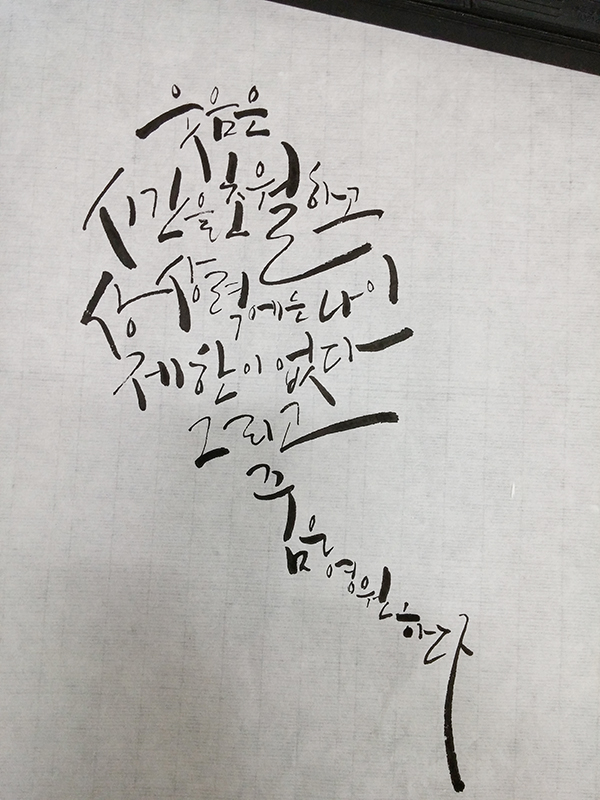 웃음은
시간을 초월하고
상상력에는 나이
제한이 없다
그리고
꿈은
영원하다